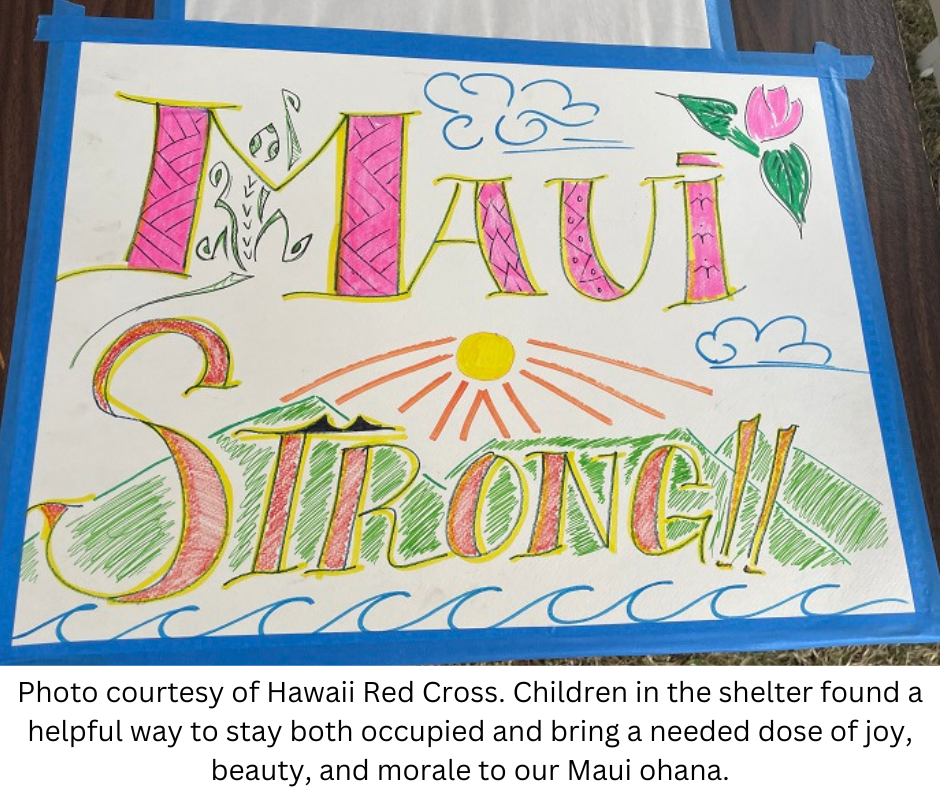 MAUI
STRONG!!
Photo courtesy of Hawaii Red Cross. Children in the shelter found a
helpful way to stay both occupied and bring a needed dose of joy,
beauty, and morale to our Maui ohana.